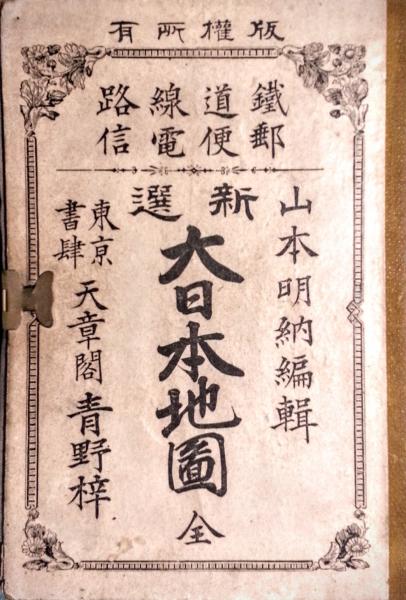 版權所有
鐵道線路
郵便電信
山本明納編輯
新選
大日本地圖 全
東亰
書肆
天章閣 青野梓